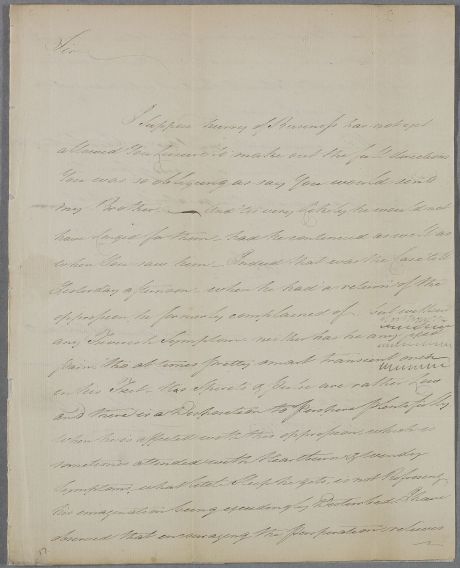 Sir
I Suppose hurry of Business has not yet
allowed You time to make out the full directions
You was so obliging as say You would send
my Brother — And 'tis very likely he would not
have longed for them had he continued as well as
when You saw him. Indeed that was the Case till
Yesterday afternoon when he had a return of the
oppression he formerly complained of but without
any Feverish Symptom neither has he any
pain, tho at times pretty smart transient ones
in his his Spirits of course are rather Low
and there is a Disposition to Perspire plentifully
When he is affected with this oppression which is
sometimes attended with Heartburn & windy
Symptoms, what little Sleep he gets, is not Refreshing
his imagination being exceedingly Disturbed. I have
observed that encouraging the Perspiration relieves